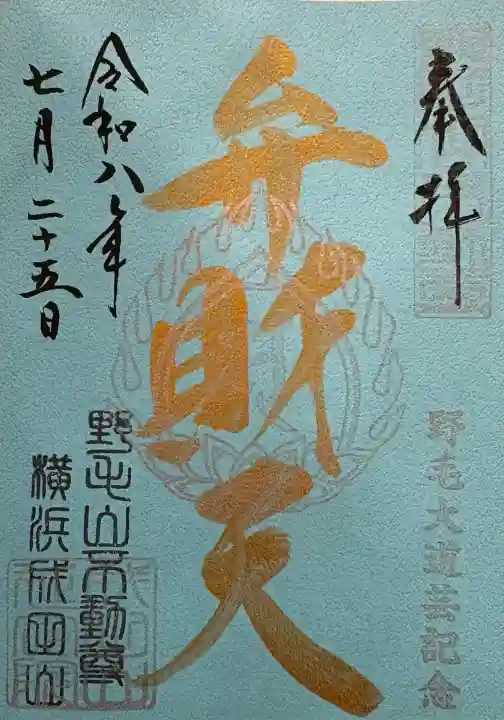 奉拝
野毛大道芸記念
弁財天
令和八年
七月二十五日
野毛山不動尊
横浜成田山